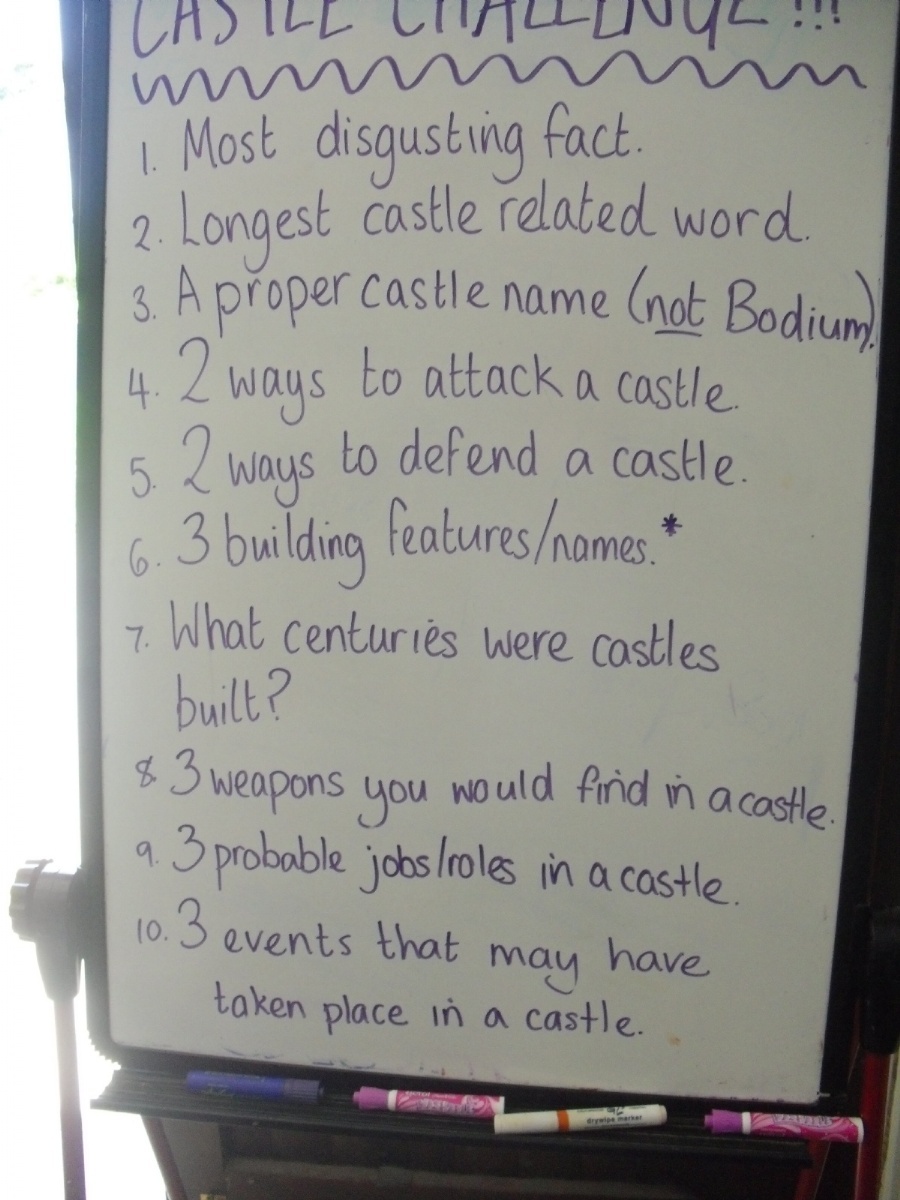 CASTLE CHALLENGE!!!
1. Most disgusting fact.
2. Longest castle related word.
3. A proper castle name (not Bodium).
4. 2 ways to attack a castle.
5. 2 ways to defend a castle.
6. 3 building features/names.*
7. What centuries were castles
built?
8 3 weapons you would find in a castle.
9. 3 probable jobs/roles in a castle.
10. 3 events that may have
taken place in a castle.
drywipe marker